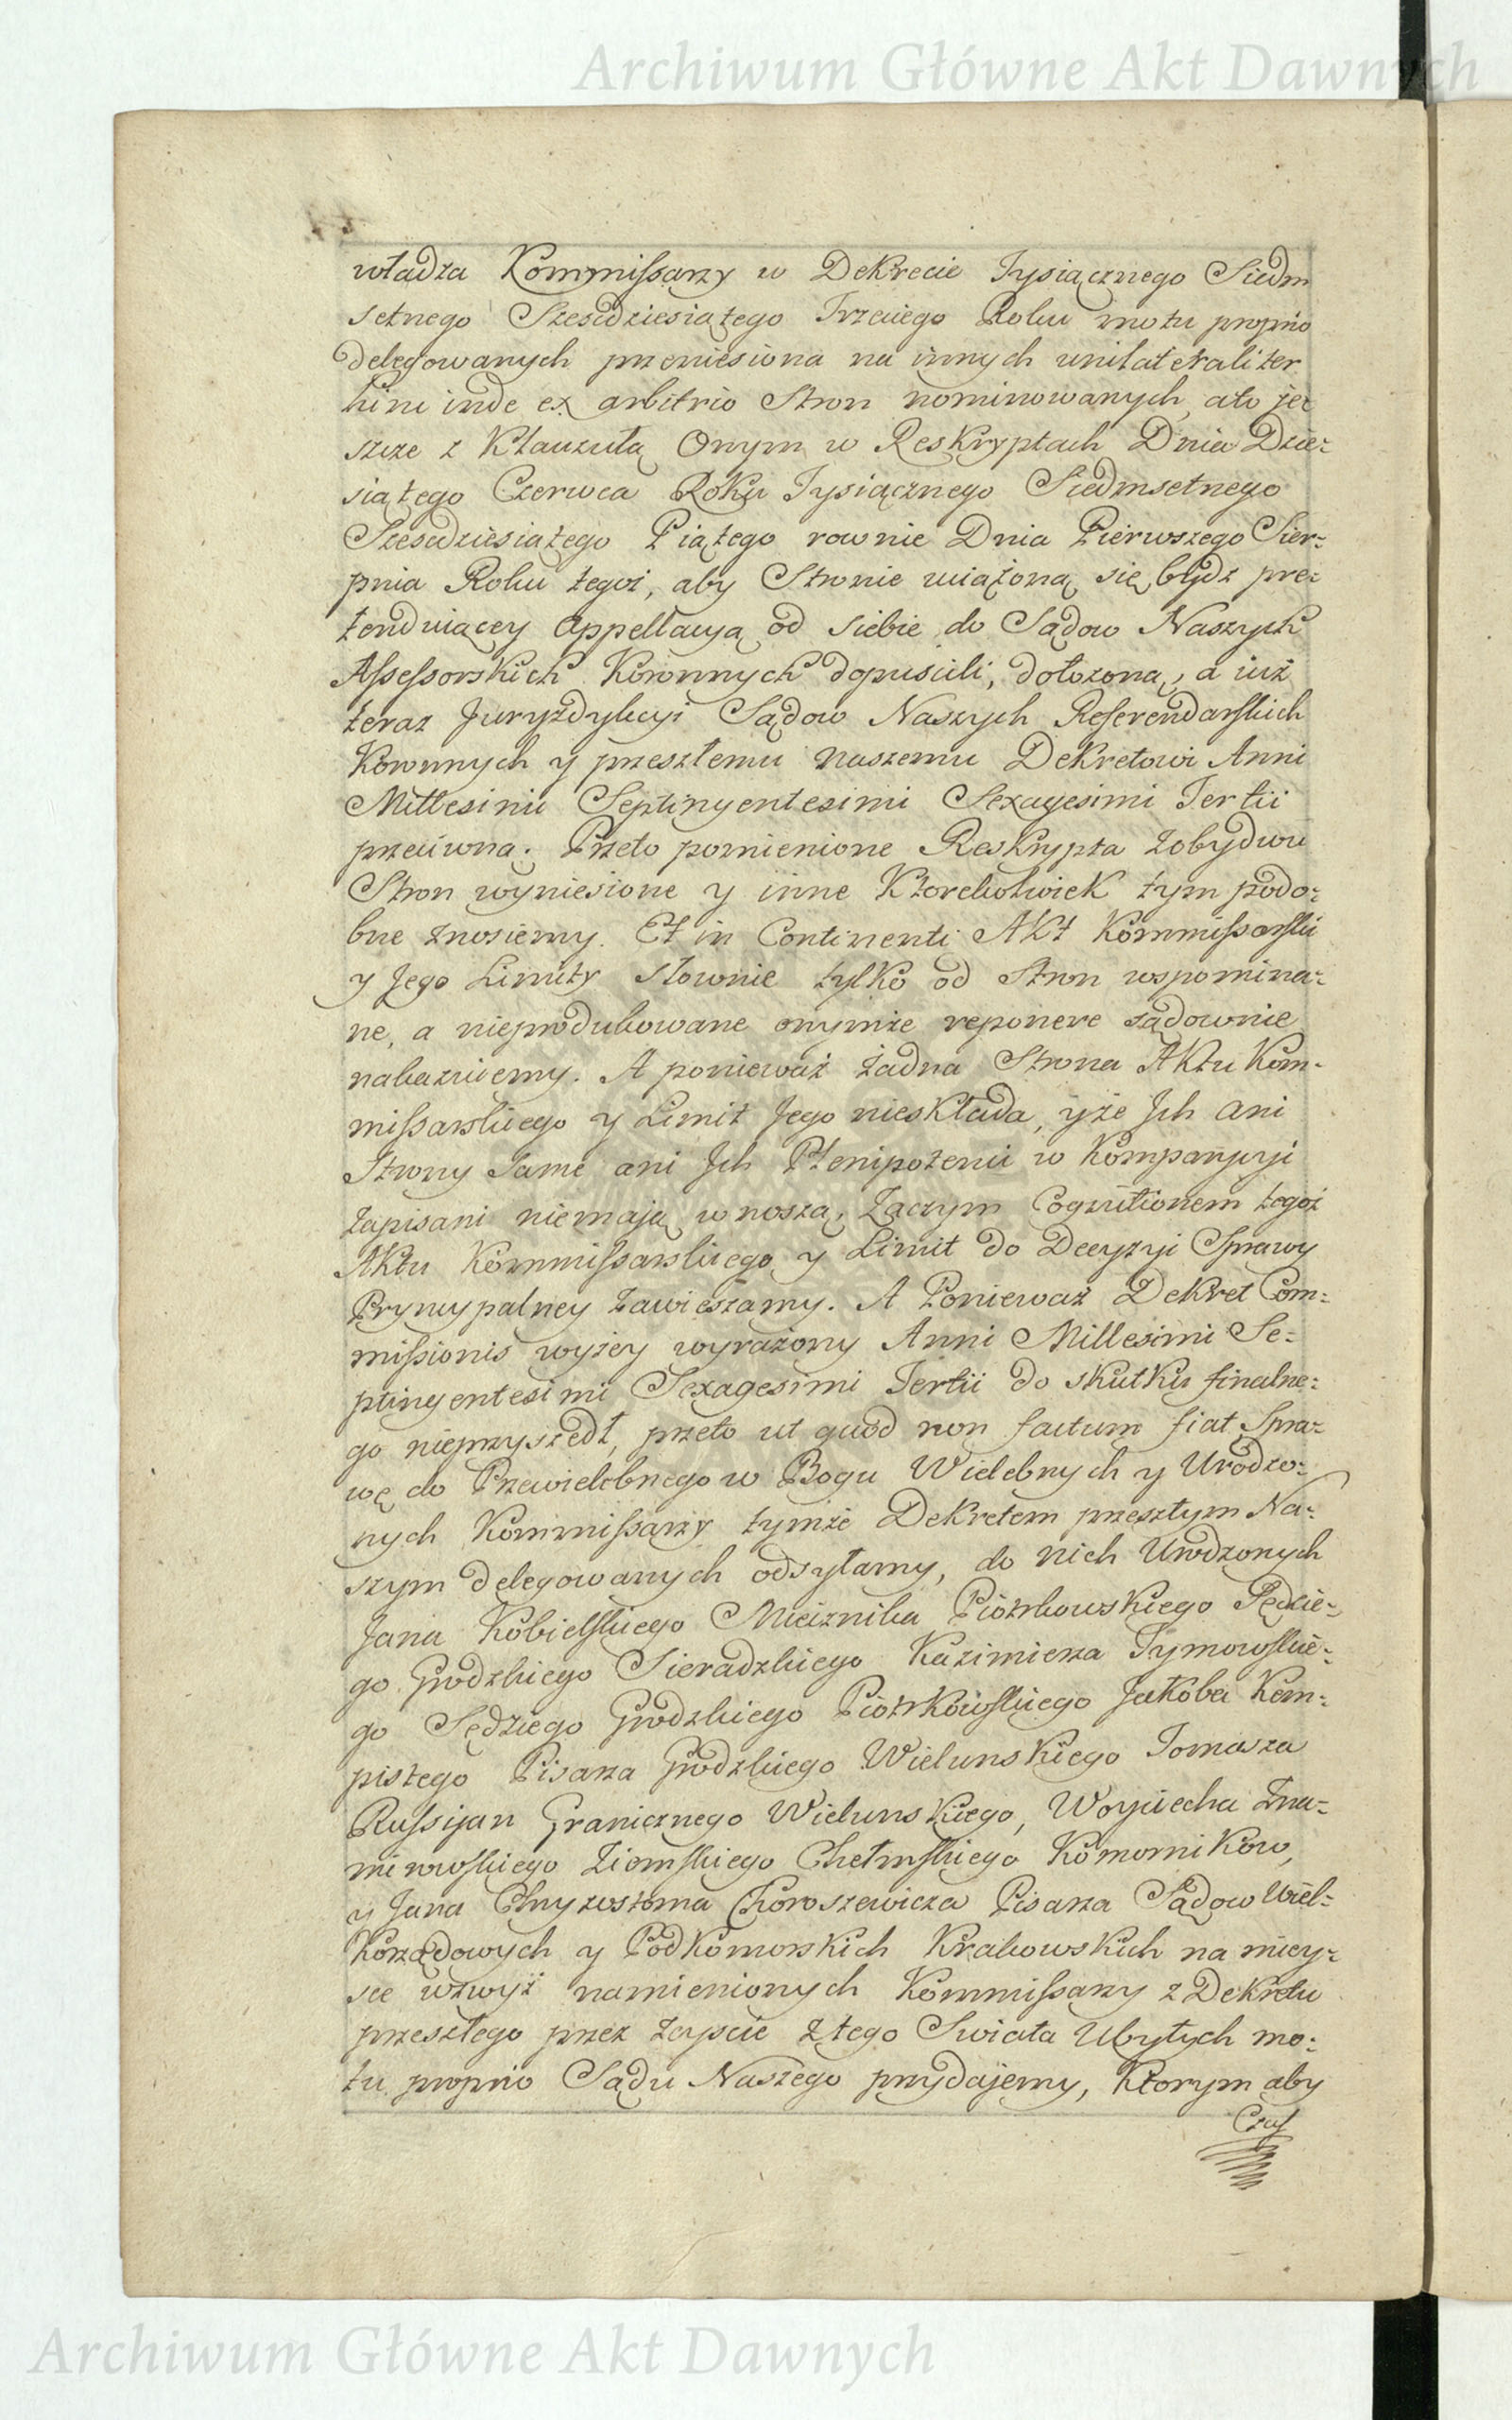 Archiwum Główne Akt Dawnych
władza Kommissarzy w Dekrecie Tysiącznego Siedm
setnego Szesdziesiątego Trzeciego Roku motu proprio
delegowanych przeniesiona na innych unilateraliter
hinc inde ex arbitrio Stron nominowanych, ato jes
szcze z Klauzulą Onym w Reskryptach Dnia Dzie-
siątego Czerwca Roku Tysiącznego Siedmsetnego
Szesdziesiątego Piątego rownie Dnia Pierwszego Sier-
pnia Roku tegoż, aby Stronie uciążoną się bydz pre-
tenduiącey Appellacyą od siebie do Sądow Naszych
Assessorskich Koronnych dopuscili, dołożoną, a iuż
teraz Juryzdykcyi Sądow Naszych Referendarskich
Koronnych y przeszłemu naszemu Dekretowi Anni
Millesimi Septingentesimi Sexagesimi Tertii
przeciwna. Przeto pomienione Reskrypta z obydwu
Stron wyniesione y inne Ktorekolwiek tym podo-
bne znosiemy. Et in Continenti AKt Kommissarski
y Jego Limity słownie tylko od Stron wspomina-
ne, a nieprodukowane onymże reponere sądownie
nakazuiemy. A ponieważ żadna Strona AKtu Kom-
missarskiego y Limit Jego nieskłada, yże Jch ani
Strony same ani Jch Plenipotenci w Komparycyi
zapisani niemaią wnoszą, Zaczym Cognitionem tegoż
AKtu Kommissarskiego y Limit do Decyzyi Sprawy
Pryncypalney zawieszamy. A Ponieważ Dekret Com-
missionis wyżey wyrażony Anni Millesimi Se-
ptingentesimi Sexagesimi Tertii do skutku finalne-
go nieprzyszedł, przeto ut quod non factum fiat Spra-
wę do Przewielebnego w Bogu Wielebnych y Urodzo-
nych Kommissarzy tymże Dekretem przeszłym Na-
szym delegowanych odsyłamy, do nich Urodzonych
Jana Kobielskiego Miecznika Piotrkowskiego Sędzie-
go Grodzkiego Sieradzkiego Kazimierza Tymowskie-
go Sędziego Grodzkiego Piotrkowskiego Jakoba Kem-
pistego Pisarza Grodzkiego Wielunskiego Tomasza
Russijan Granicznego Wielunskiego, Woyciecha Zna-
mirowskiego Ziemskiego Chełmskiego Komornikow,
y Jana Chryzostoma Choroszewicza Pisarza Sądow Wiel-
korządowych y Podkomorskich Krakowskich na miey-
sce wzwyż namienionych Kommissarzy z Dekretu
przeszłego przez zeyscie z tego Swiata Ubyłych mo-
tu proprio Sądu Naszego przydajemy, Ktorym aby
Czas
Archiwum Główne Akt Dawnych